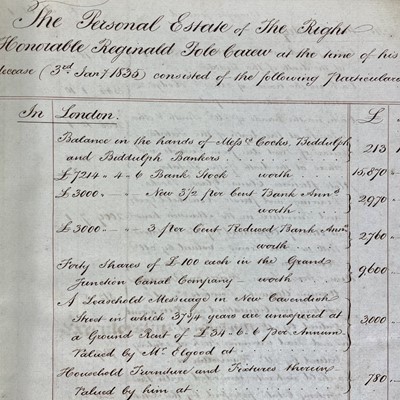 The Personal Estate of The Right
Honorable Reginald Pole Carew at the time of his
decease (3rd Jany 1835) consisted of the following Particulars
In London. £
Balance in the hands of Messrs Cocks, Biddulph
and Biddulph Bankers . . . 213
£7214 - 4 - 6 Bank Stock worth . . . 15,870
£3000 " " New 3 1/2 per Cent Bank Anns
worth . . . 2,970
£3000 " " 3 per Cent Reduced Bank Anns
worth . . . 2,760
Forty Shares of £100 each in the Grand
Junction Canal Company — worth . . 9,600
A Leasehold Messuage in New Cavendish
Street in which 37 3/4 years are unexpired at
a Ground Rent of £34 - 6 - 6 per Annum 3000
Valued by Mr Elgood at . .
Household Furniture and Fixtures therein
Valued by him at . . . 780